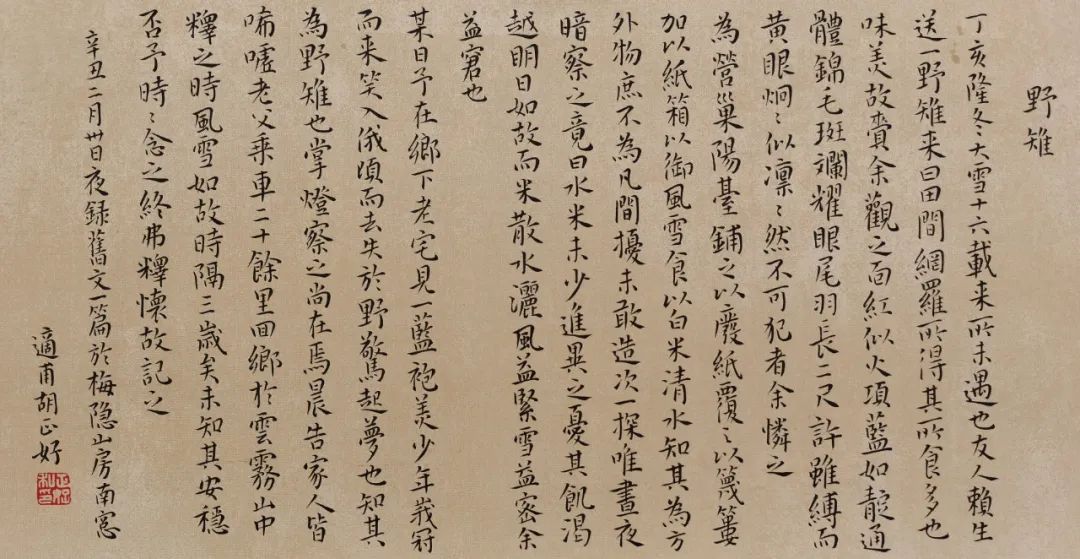 野雉
丁亥隆冬大雪十六載来所未遇也友人賴生
送一野雉来曰田間網羅所得其所食多也
味美故賚余觀之面紅似火項藍如靛通
體錦毛斑斕耀眼尾羽長二尺許雖縛而
黄眼炯〻似凛〻然不可犯者余憐之
為營巢陽臺鋪之以廢紙覆之以篾簍
加以紙箱以御風雪食以白米清水知其為方
外物庶不為凡間擾未敢造次一探唯晝夜
暗察之竟日水米未少進異之憂其飢渴
越明日如故而米散水灑風益緊雪益密余
益窘也
某日予在鄉下老宅見一藍袍美少年峩冠
而来笑入俄頃而去失於野驚起夢也知其
為野雉也掌燈察之尚在焉晨告家人皆
唏嘘老父乘車二十餘里回鄉於雲霧山中
釋之時風雪如故時隔三歲矣未知其安穩
否予時〻念之終弗釋懷故記之
辛丑二月卅日夜録舊文一篇於梅隐山房南窓
適甫胡正好